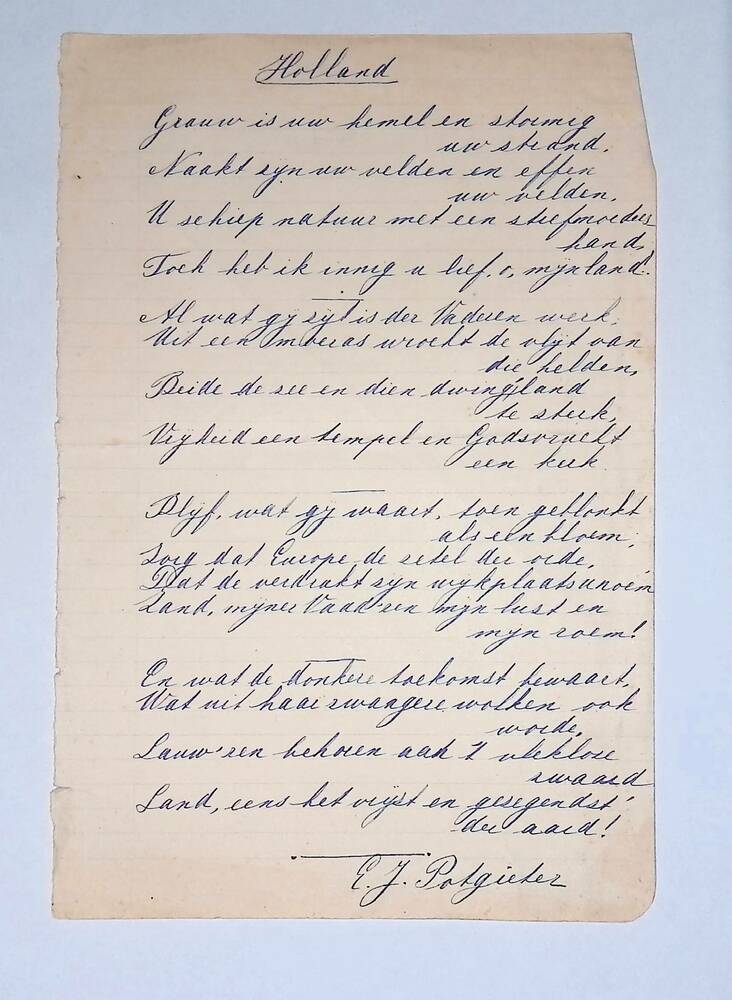 Holland
Grauw is uw hemel en stormig
uw strand.
Naakt zyn uw velden en effen
uw velden.
U schiep natuur met een stiefmoeders
hand,
Toch heb ik innig u lief, o, mijn land!
Al wat gy zyt is der Vaderen werk;
Uit een moeras wrocht de vlyt van
die helden,
Beide de zee en dien dwing'land
te sterk,
Vryheid een tempel en Godsvrucht
een kerk.
Blyf, wat gy waart, toen geblonkt
als een bloem;
Zorg dat Europe de zetel der orde,
Dat de verdrukt zyn wykplaats u noem
Land, myner Vaad'ren myn lust en
myn roem!
En wat de donkere toekomst bewaart,
Wat uit haar zwangere wolken ook
worde,
Lauw'ren behoren aan 't vleklose
zwaard
Land, eens het vryst en gezegendst'
der aard!
E. J. Potgieter